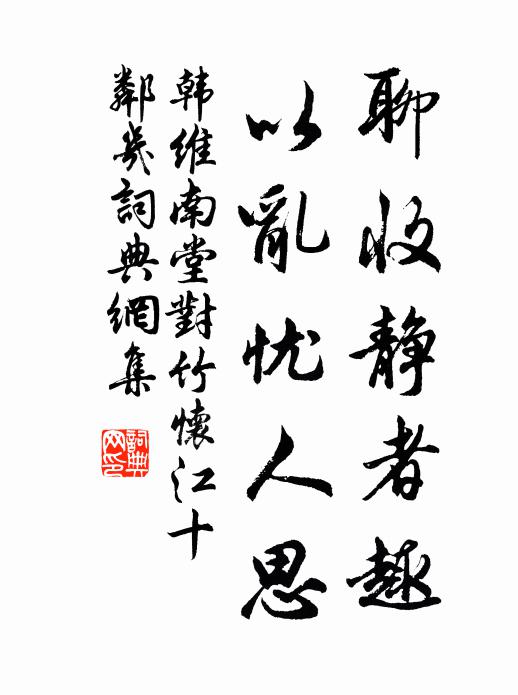 聊收靜者趣
以亂忧人思
韩维南堂對竹懷江十
鄰幾詞典網集
詞典
网印